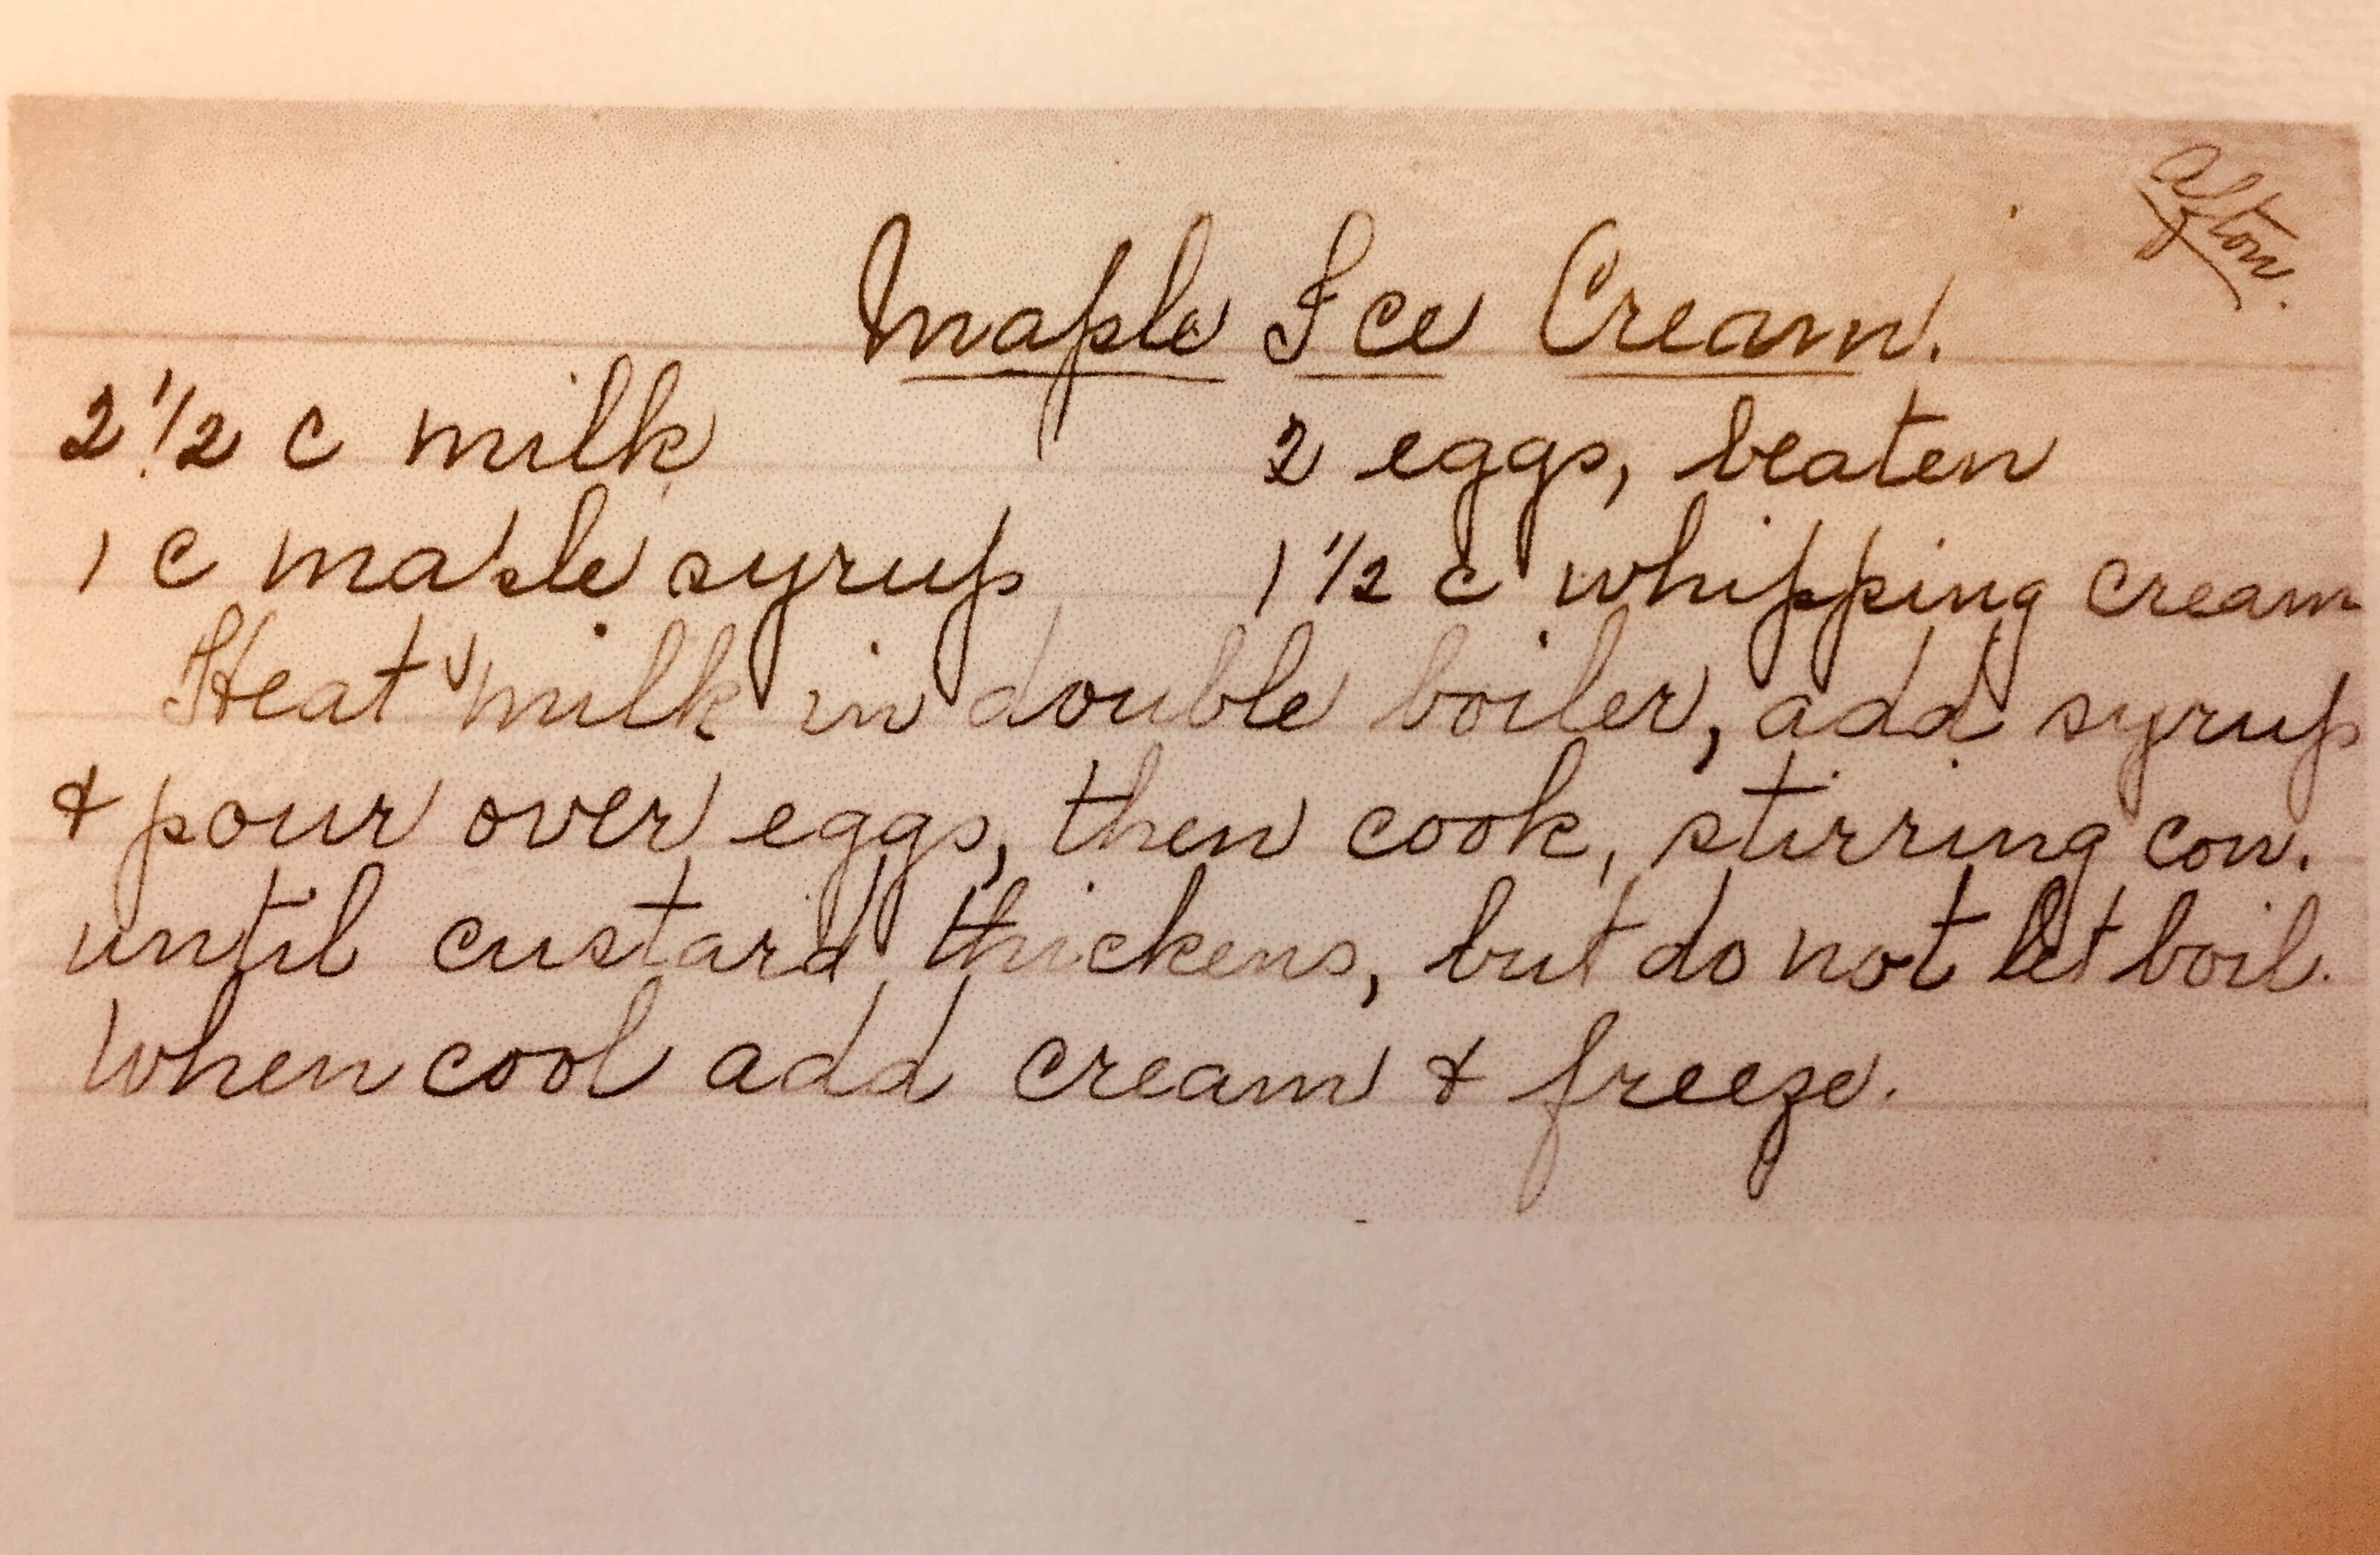 Afton.
Maple Ice Cream.
2 1/2 c milk 2 eggs, beaten
1 c maple syrup 1 1/2 c whipping cream
Heat milk in double boiler, add syrup
& pour over eggs, then cook, stirring con.
until custard thickens, but do not let boil.
When cool add cream & freeze.